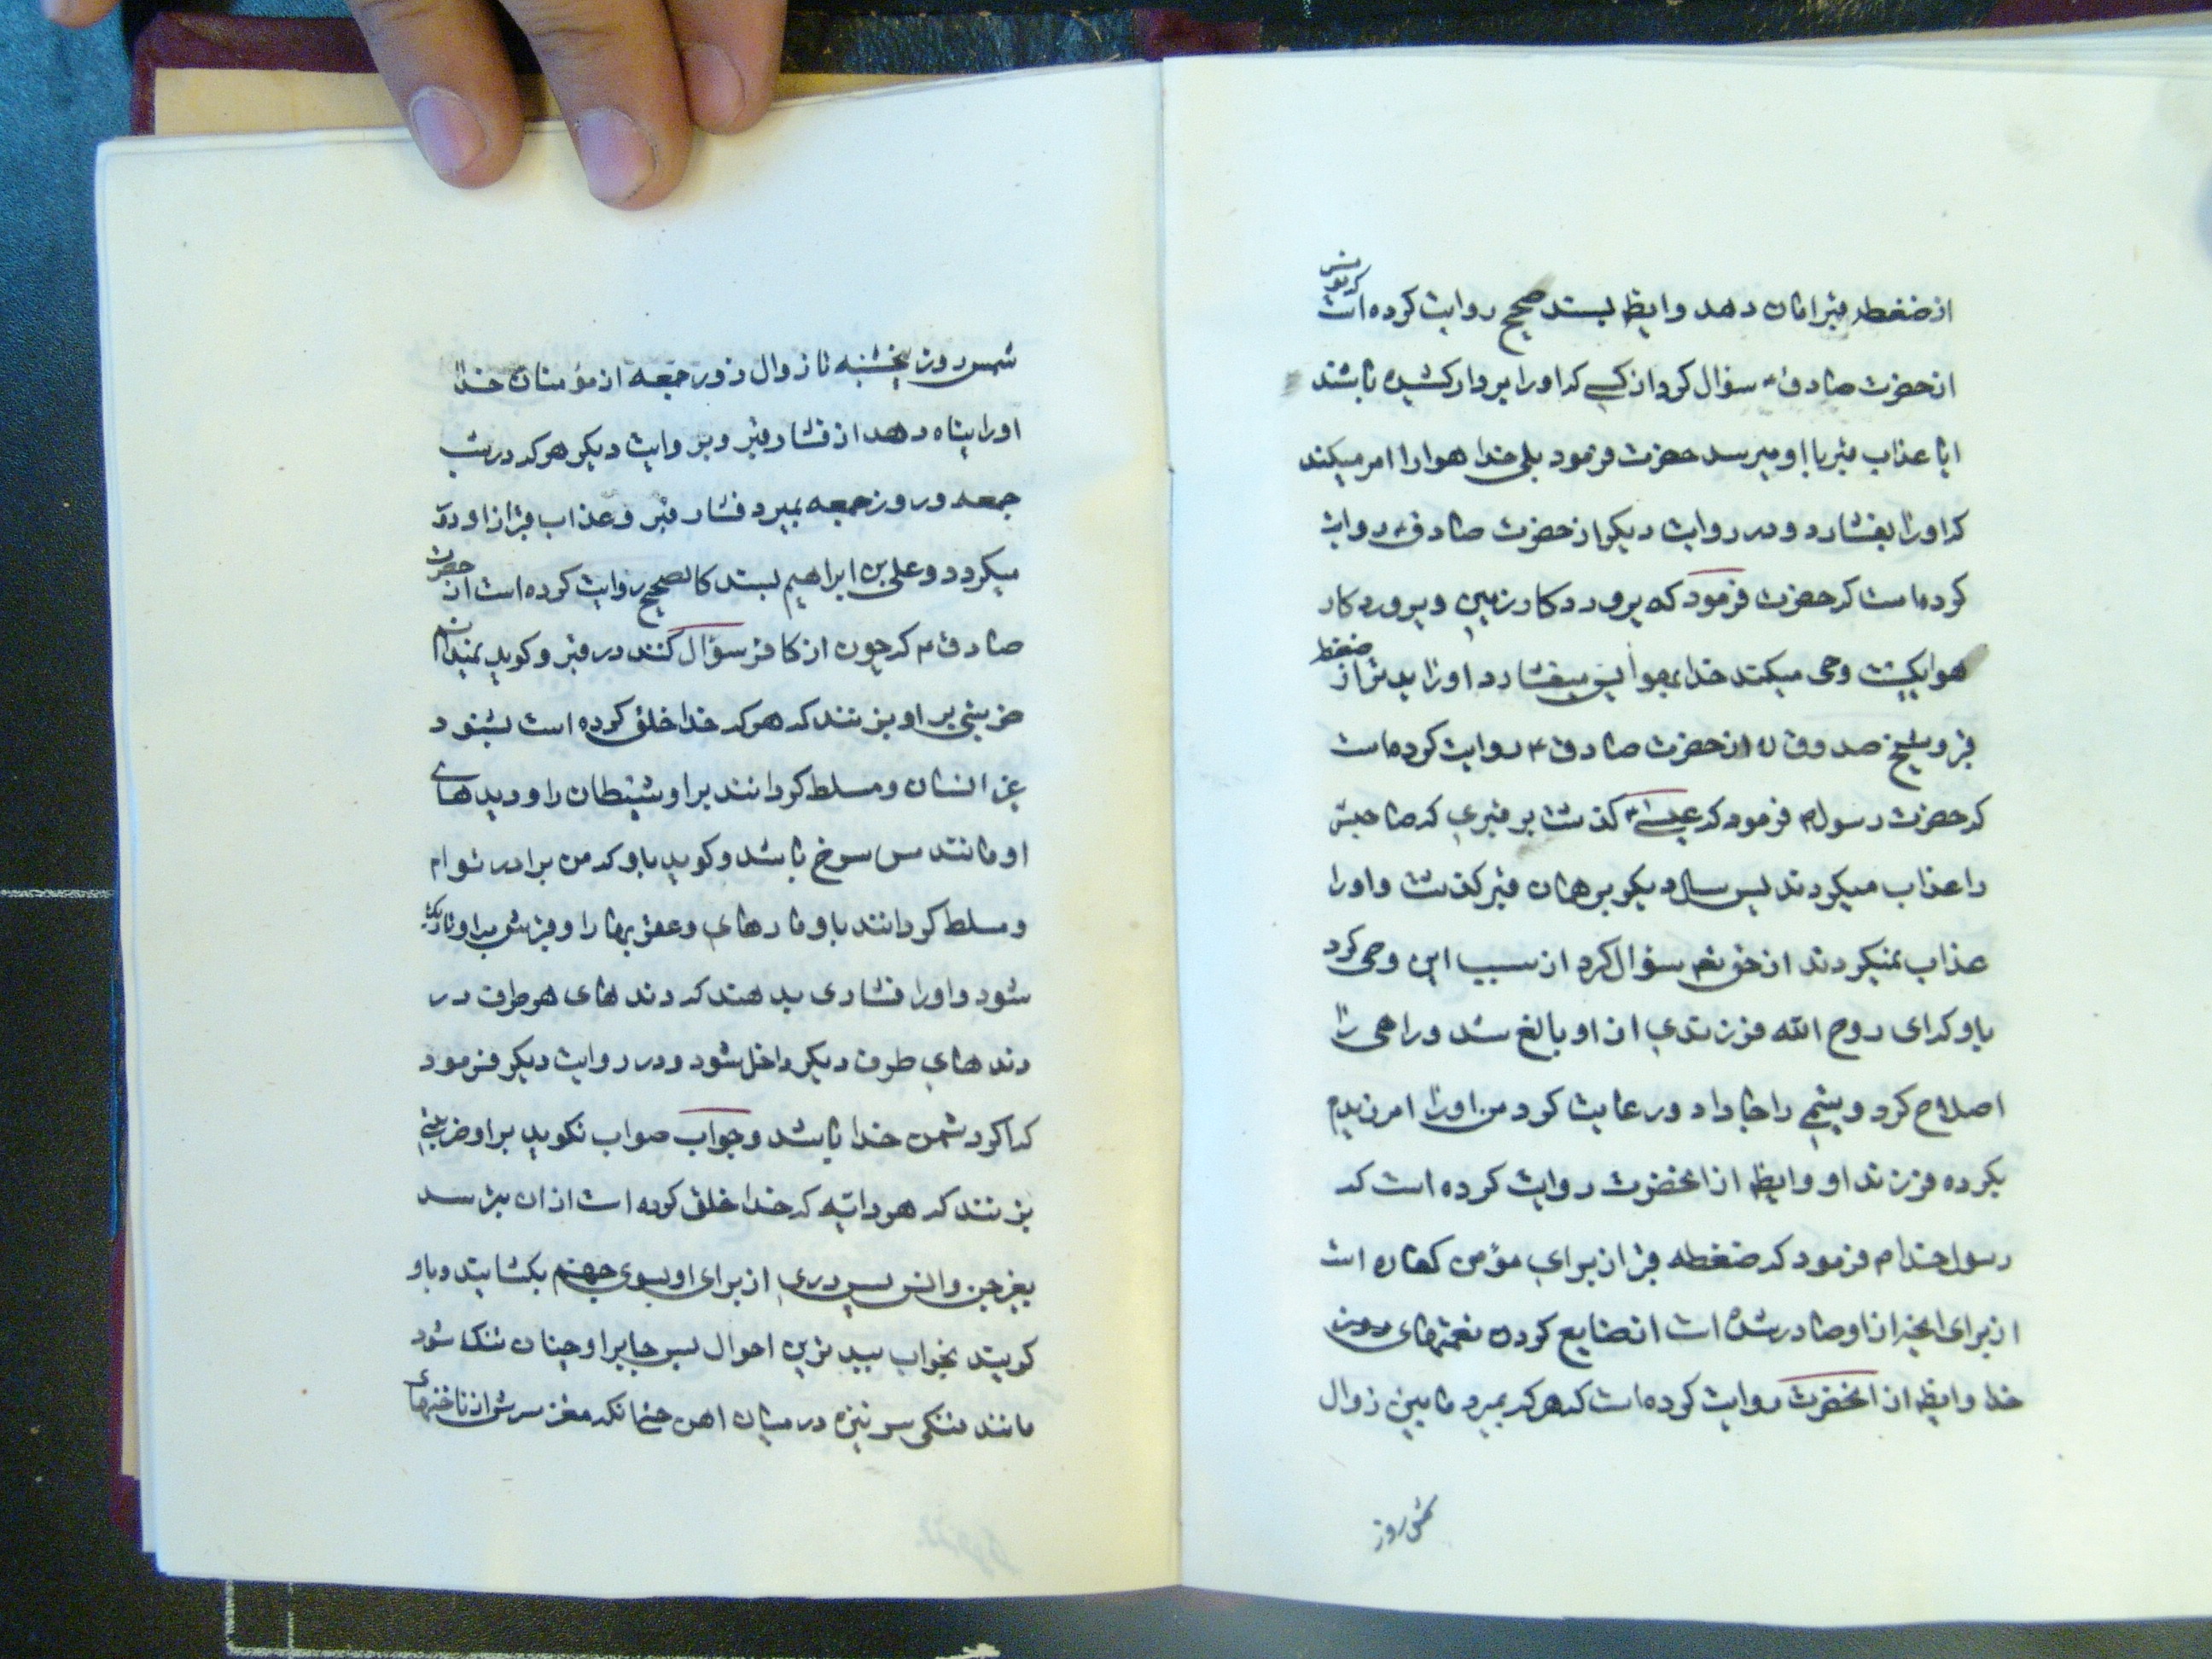 از ضغطه قبر امان دهد و ایضا بسند صحیح روایت کرده است که یونس
از حضرت صادق ع سؤال کرد از کسی که او را بر دار کشیده باشند
ایا عذاب قبر باو میرسد حضرت فرمود بلی خدا هوا را امر میکند
که او را بفشارد و در روایت دیگر از حضرت صادق ع روایت
کرده است که حضرت فرمود که پروردکار زمین و پروردکار
هوا یکیست وحی میکند خدا بهوا پس میفشارد او را بدتر از ضغطه
قبر و شیخ صدوق از حضرت صادق ع روایت کرده است
که حضرت رسول م فرمود که عیسی ع کذشت بر قبری که صاحبش
را عذاب میکردند پس سال دیکر بر همان قبر کذشت و او را
عذاب نمیکردند از حق تعم سؤال کرد از سبب این وحی کرد
باو که ای روح الله فرزندی از او بالغ شد و راهی را
اصلاح کرد و یتیمی را جا داد و رعایت کرد من او را امرزیدم
بکرده فرزند او و ایضا از انحضرت روایت کرده است که
رسول خدا م فرمود که ضغطه قبر از برای مؤمن کفاره است
از برای انچه از او صادر شده است از ضایع کردن نعمتهای
خدا و ایضا از انحضرت روایت کرده است که هر که بمیرد مابین زوال
شمس روز
شمس روز پنجشنبه تا زوال روز جمعه از مؤمنان خدا
او را پناه دهد از فشار قبر و بروایت دیکر هر که در شب
جمعه و روز جمعه بمیرد فشار قبر و عذاب قبر از او دور
میکردد و علی بن ابراهیم بسند کالصحیح روایت کرده است از حضرت
صادق م که چون از کافر سؤال کنند در قبر و کوید نمیدانم
ضربتی بر او بزنند که هر که خدا خلق کرده است بشنود
غیر انسان و مسلط کردانند بر او شیطان را و دیدهای
او مانند مس سرخ باشد و کوید باو که من برادر توام
و مسلط کردانند باو مارهای و عقربها را و قبرش بر او تاریک
شود و او را فشاری بدهند که دندهای هر طرف در
دندهای طرف دیکر داخل شود و در روایت دیکر فرمود
که اکر دشمن خدا باشد و جواب صواب نکوید بر او ضربتی
بزنند که هر دابه که خدا خلق کرده است از ان بترسد
بغیر جن و انس پس دری از برای او بسوی جهنم بکشایند و باو
کویند بخواب ببدترین احوال پس جا بر او چنان تنک شود
مانند تنکی سر نیزه در میان اهن چنانکه مغز سرش از ناخنهای